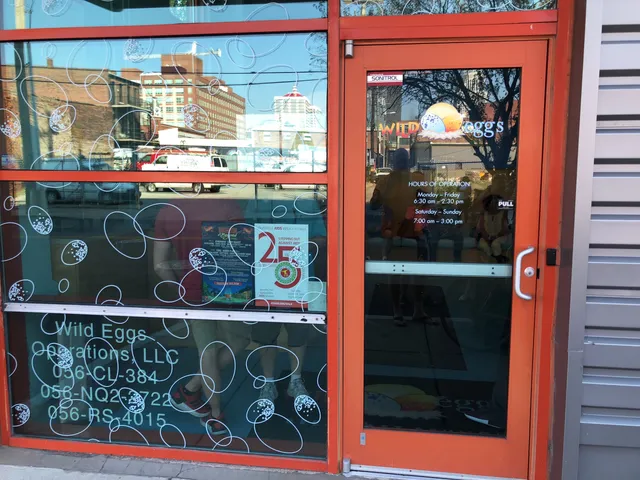 SONITROL
WILD eggs
HOURS OF OPERATION
Monday - Friday
6:30 am - 2:30 pm
Saturday - Sunday
7:00 am - 3:00 pm
PULL
2.5
Wild Eggs
Operations, LLC
056-CL-384
056-RS-4015
eggs